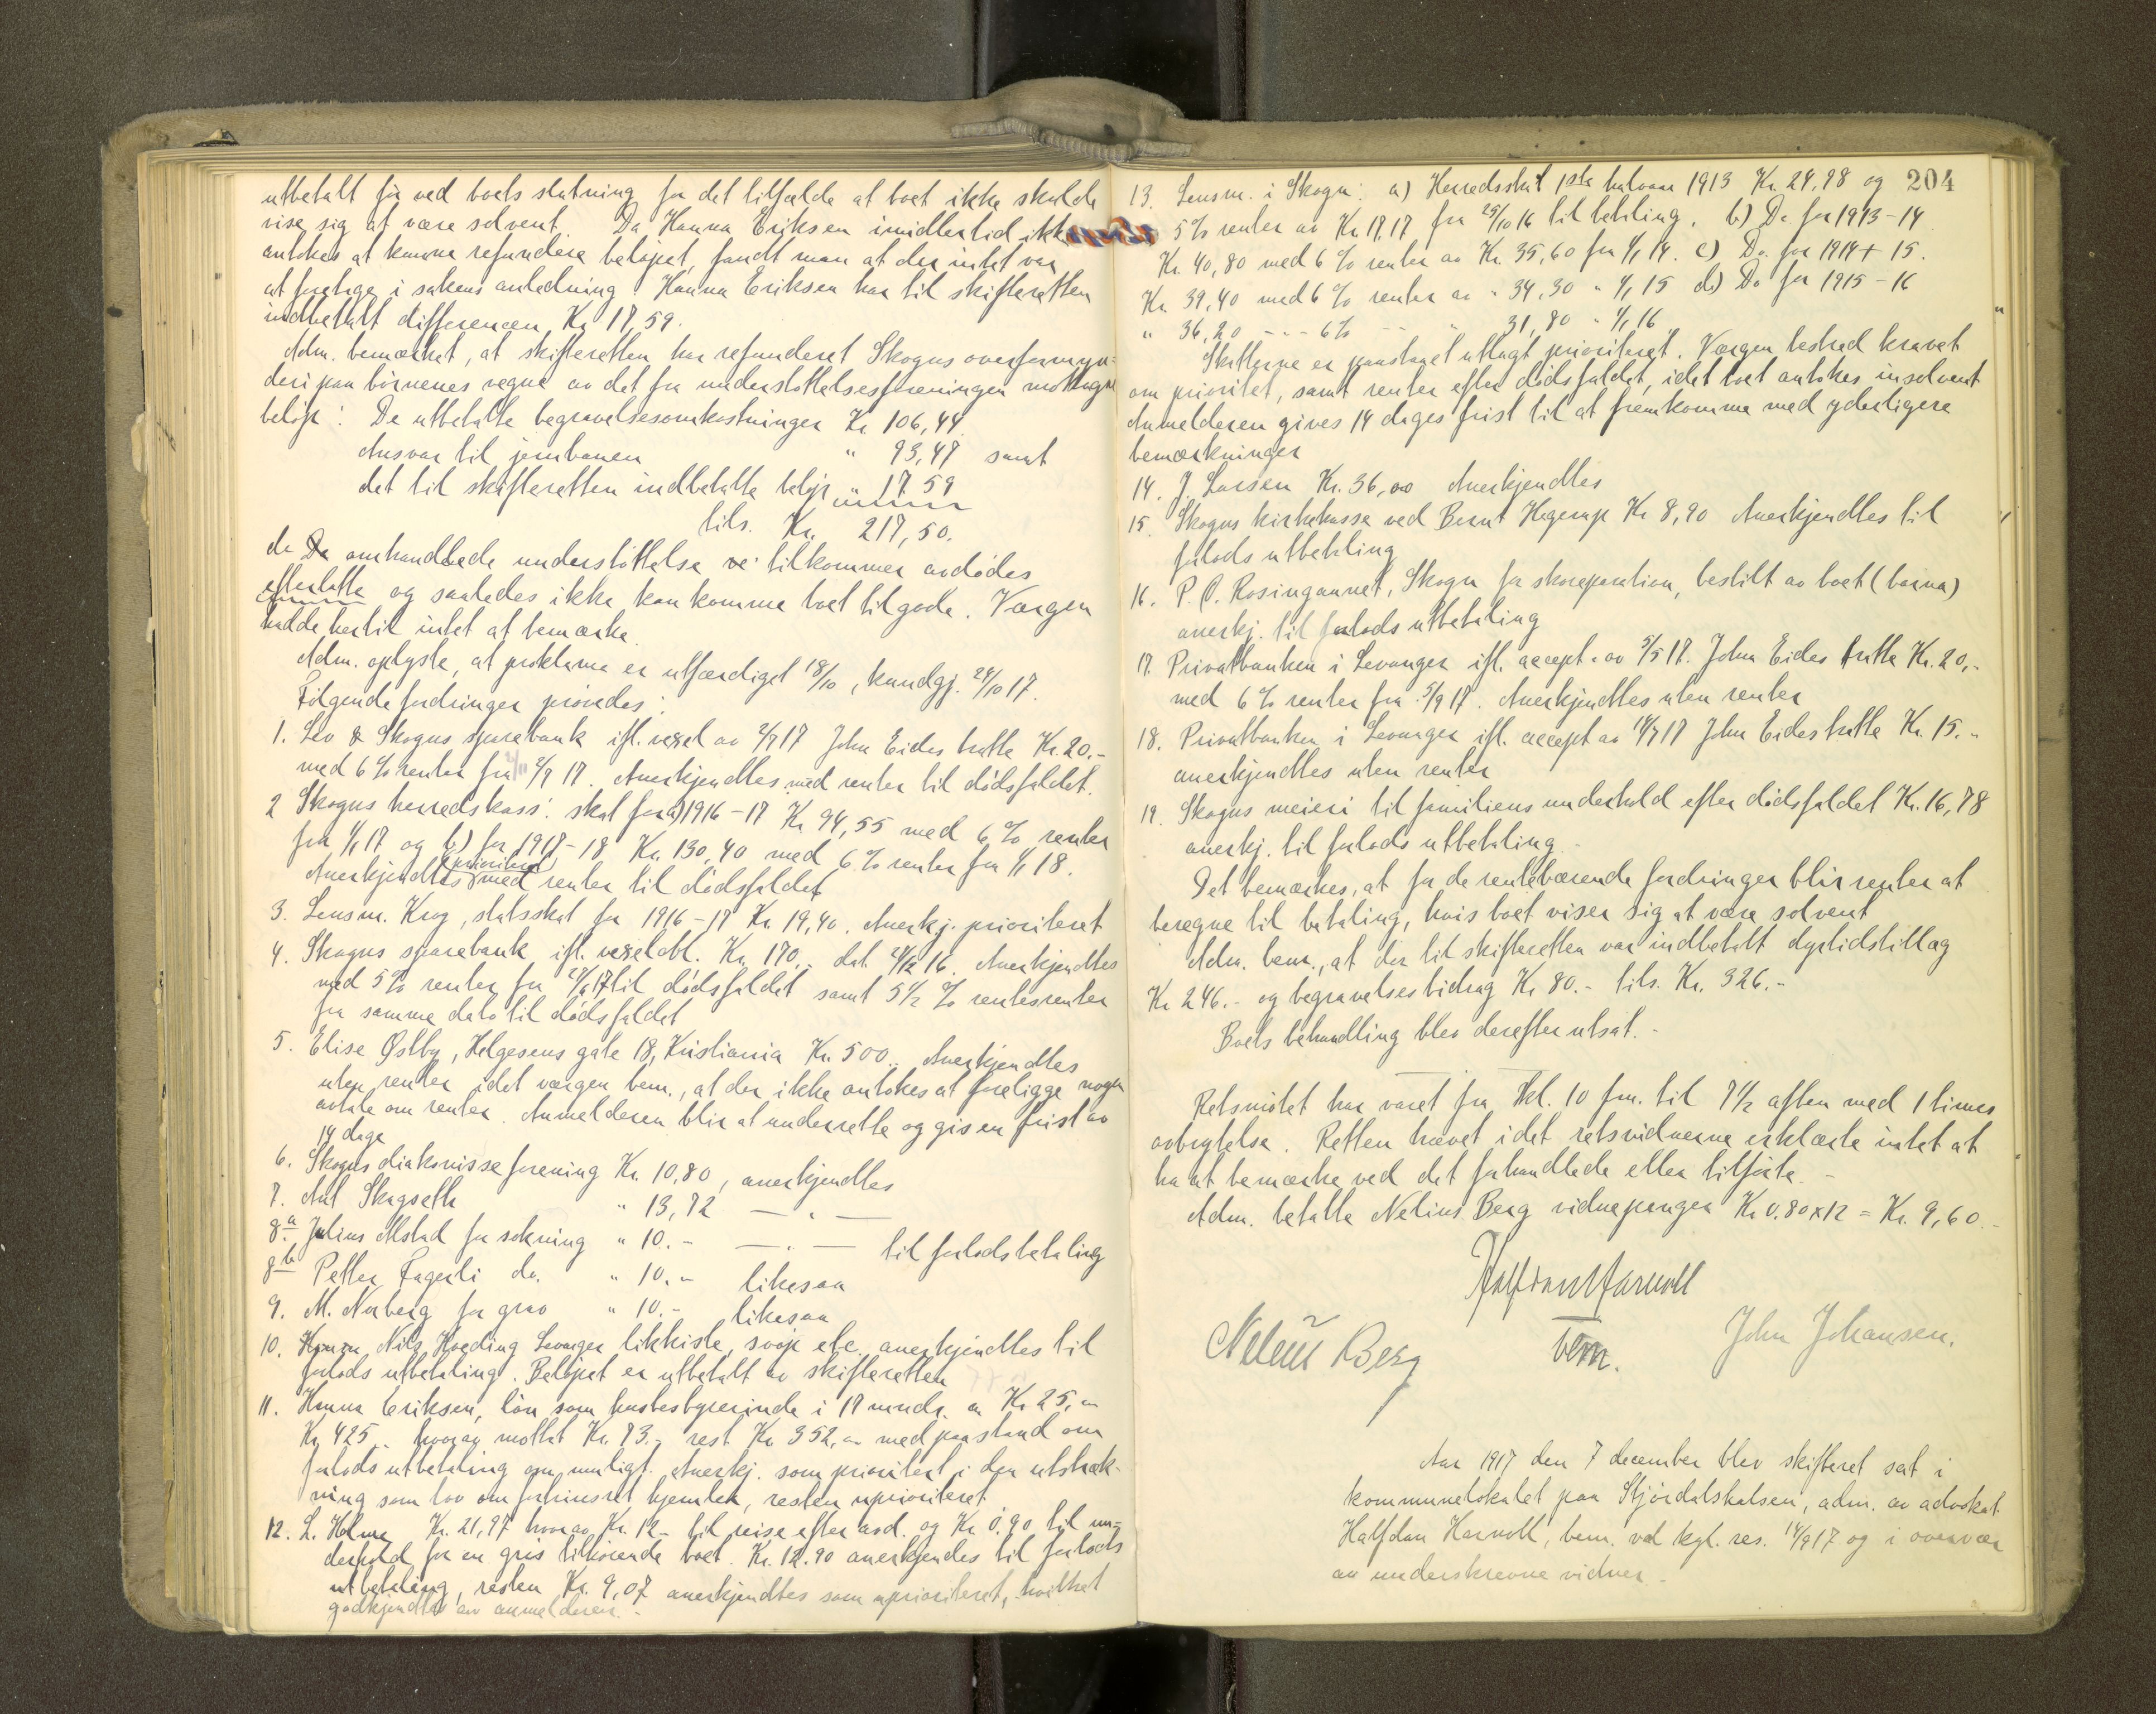 utbetalt før ved boets slutning for det tilfælde at boet ikke skulde
vise sig at være solvent. Da Hanna Eriksen imidlertid ikke
antokes at kunne refundere beløpet, fandt man at der intet var
at foretage i sakens anledning. Hanna Eriksen har til skifteretten
indbetalt differencen Kr 17,59.
Adm. bemærket, at skifteretten har refunderet Skogns overformyn-
deri paa børnenes vegne av det fra understøttelsesforeningen mottagne
beløp: De utbetalte begravelsesomkostninger Kr 106,44
Ansvar til jernbanen " 93,47 samt
det til skifteretten indbetalte beløp " 17 59
tils. Kr. 217,50.
da omhandlede understøttelse tilkommer avdødes
efterlatte og saaledes ikke kan komme boet tilgode.Værgen
hadde hertil intet at bemærke.
Adm. oplyste, at proklama er utfærdiget 18/10, kundgj. 24/10 17.
Følgende fordringer prøvedes:
1. Lev & Skogns sparebank ifl. vexel av 2/7 17 John Eides tratte Kr. 20.-
med 6 % renter fra 2/9 17. Anerkjendtes med renter til dødsfaldet.
2 Skogns herredskass: skat for a) 1916-17 Kr 94,55 med 6 % renter
fra 1/1 17 og b) for 1917-18 Kr. 130,40 med 6 % renter fra 1/1 18.
Anerkjendtes (prioritert) med renter til dødsfaldet
3. Lensm. Krog, statsskat for 1916-17 Kr 19,40. Anerkj. prioriteret
4. Skogns sparebank ifl. vexelobl. Kr. 170.- dat 24/12 16. Anerkjendtes
med 5 % renter fra 24/6 17 til dødsfaldet samt 5 1/2 % rentesrenter
fra samme dato til dødsfaldet
5. Elise Østby, Helgesens gate 18, Kristiania Kr. 500.- Anerkjendtes
uten renter idet værgen bem., at der ikke antokes at foreligge nogen
avtale om renter. Anmelderen blir at underrette og gis en frist av
14 dage
6. Skogns diakonisseforening Kr. 10,80, anerkjendtes
7. Ant Skagseth " 13,72 — " —
8a Julius Alstad for sokning " 10.- — " — til forlodsbetaling
8b Petter Fagerli do. " 10.- likesaa
9. M. Norberg for grav " 10.- likesaa
10. Nils Hveding Levanger likkiste, svøp etc. anerkjendtes til
forlods utbetaling. Beløpet er utbetalt av skifteretten
11. Hanna Eriksen, løn som husbestyrerinde i 17 mndr. a Kr 25,-
Kr 425.- hvorav mottat Kr. 73.- rest Kr 352,- med paastand om
forlods utbetaling om muligt. Anerkj. som prioritert i den utstræk-
ning som lov om fortrinsret hjemler, resten uprioriteret
12. L. Holme Kr. 21,97 hvorav Kr. 12.- til reise efter avd. og Kr 0,90 til un-
derhold for en gris tilhørende boet. Kr. 12.90 anerkjendes til forlods
utbetaling, resten Kr. 9,07 anerkjendtes som uprioriteret, hvilket
godkjendtes av anmelderen.-
204
13. Lensm. i Skogn: a) Herredsskat 1ste halvaar 1913 Kr. 24,98 og
5 % renter av Kr. 17,17 fra 25/10 16 til betaling. b) Do for 1913-14
Kr. 40,80 med 6 % renter av Kr. 35,60 fra 1/1 14. c) Do. for 1914 + 15.
Kr. 39,40 med 6 % renter av " 34,30 " 1/1 15 d) Do for 1915-16
" 36,20 - - - 6 % - - " 31,80 " 1/1 16
Skatterne er paastaaet utlagt prioriteret. Værgen bestred kravet
om prioritet, samt renter efter dødsfaldet, idet boet antokes insolvent
Anmelderen gives 14 dages frist til at fremkomme med yderligere
bemærkninger
14. J. Larsen Kr. 36,00 Anerkjendtes
15. Skogns kirkekasse ved Bernt Hagerup Kr 8,90 Anerkjendtes til
forlods utbetaling
16. P. O. Rosingaunet, Skogn for skoreparation, bestilt av boet (barna)
anerkj. til forlods utbetaling
17. Privatbanken i Levanger ifl. accept av 5/5 17. John Eides tratte Kr. 20,-
med 6 % renter fra 5/9 17. Anerkjendtes uten renter
18. Privatbanken i Levanger ifl. accept av 14/7 17 John Eides tratte Kr. 15.-
anerkjendtes uten renter
19. Skogns meieri til familiens underhold efter dødsfaldet Kr. 16,78
anerkj. til forlods utbetaling.-
Det bemærkes, at for de rentebærende fordringer blir renter at
beregne til betaling, hvis boet viser sig at være solvent
Adm. bem., at der til skifteretten var indbetalt dyrtidstillæg
Kr 246.- og begravelsesbidrag Kr 80.- tils. Kr. 326.-
Boets behandling blev derefter utsat.-
Retsmøtet har varet fra Kl. 10 fm. til 7 1/2 aften med 1 times
avbrytelse. Retten hævet idet retsvidnerne erklærte intet at
ha at bemærke ved det forhandlede eller tilførte.-
Adm. betalte Nelius Berg vidnepenger Kr 0.80 x 12 = Kr. 9,60.-
Halfdan Harnoll
bem.
Nelius Berg
John Johansen.
Aar 1917 den 7 december blev skifteret sat i
kommunelokalet paa Stjørdalshalsen, adm. av advokat
Halfdan Harnoll, bem. ved kgl. res. 14/9 17 og i overvær
av underskrevne vidner.-